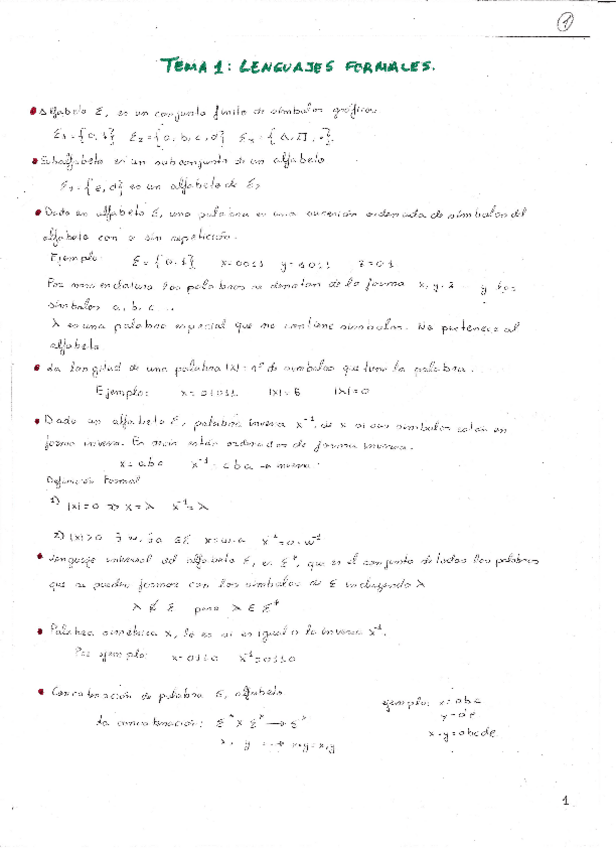 1
TEMA 1: LENGUAJES FORMALES.
Alfabeto Σ, es un conjunto finito de símbolos gráficos
Σ1 = {0,1} Σ2 = {a, b, c, d}
Subalfabeto es un subconjunto de un alfabeto
es un alfabeto de Σ2
Dado un alfabeto Σ, una palabra es una ordenada de símbolos del
alfabeto con o sin repetición.
Ejemplo: Σ = {0,1} x=0011
Por nomenclatura las palabras se denotan de la forma x, y, z y los
símbolos a, b, c ...
λ es una palabra especial que no contiene símbolos. No pertenece al
alfabeto
La longitud de una palabra |x| = nº de símbolos que tiene la palabra.
Ejemplo: |λ|=0
Dado un alfabeto Σ, palabra inversa x⁻¹, de x si sus símbolos están en
forma inversa. Es decir están ordenados de forma inversa.
x = abc x⁻¹ = cba → inversa
Definición Formal
1) |x|=0 ⇒ x=λ x⁻¹=λ
2) |x|>0 x=w·a x⁻¹=a·w⁻¹
Lenguaje universal del alfabeto Σ, es Σ*, que es el conjunto de todas las palabras
que se pueden formar con los símbolos de Σ incluyendo λ
λ ∉ Σ pero λ ∈ Σ*
Palabra simétrica x, lo es si es igual a la inversa x⁻¹.
Por ejemplo: x=0110 x⁻¹=0110
Concatenación de palabra Σ, alfabeto
ejemplo: x=abc
y=de
x·y=abcde
La concatenación: Σ* x Σ* → Σ*
1